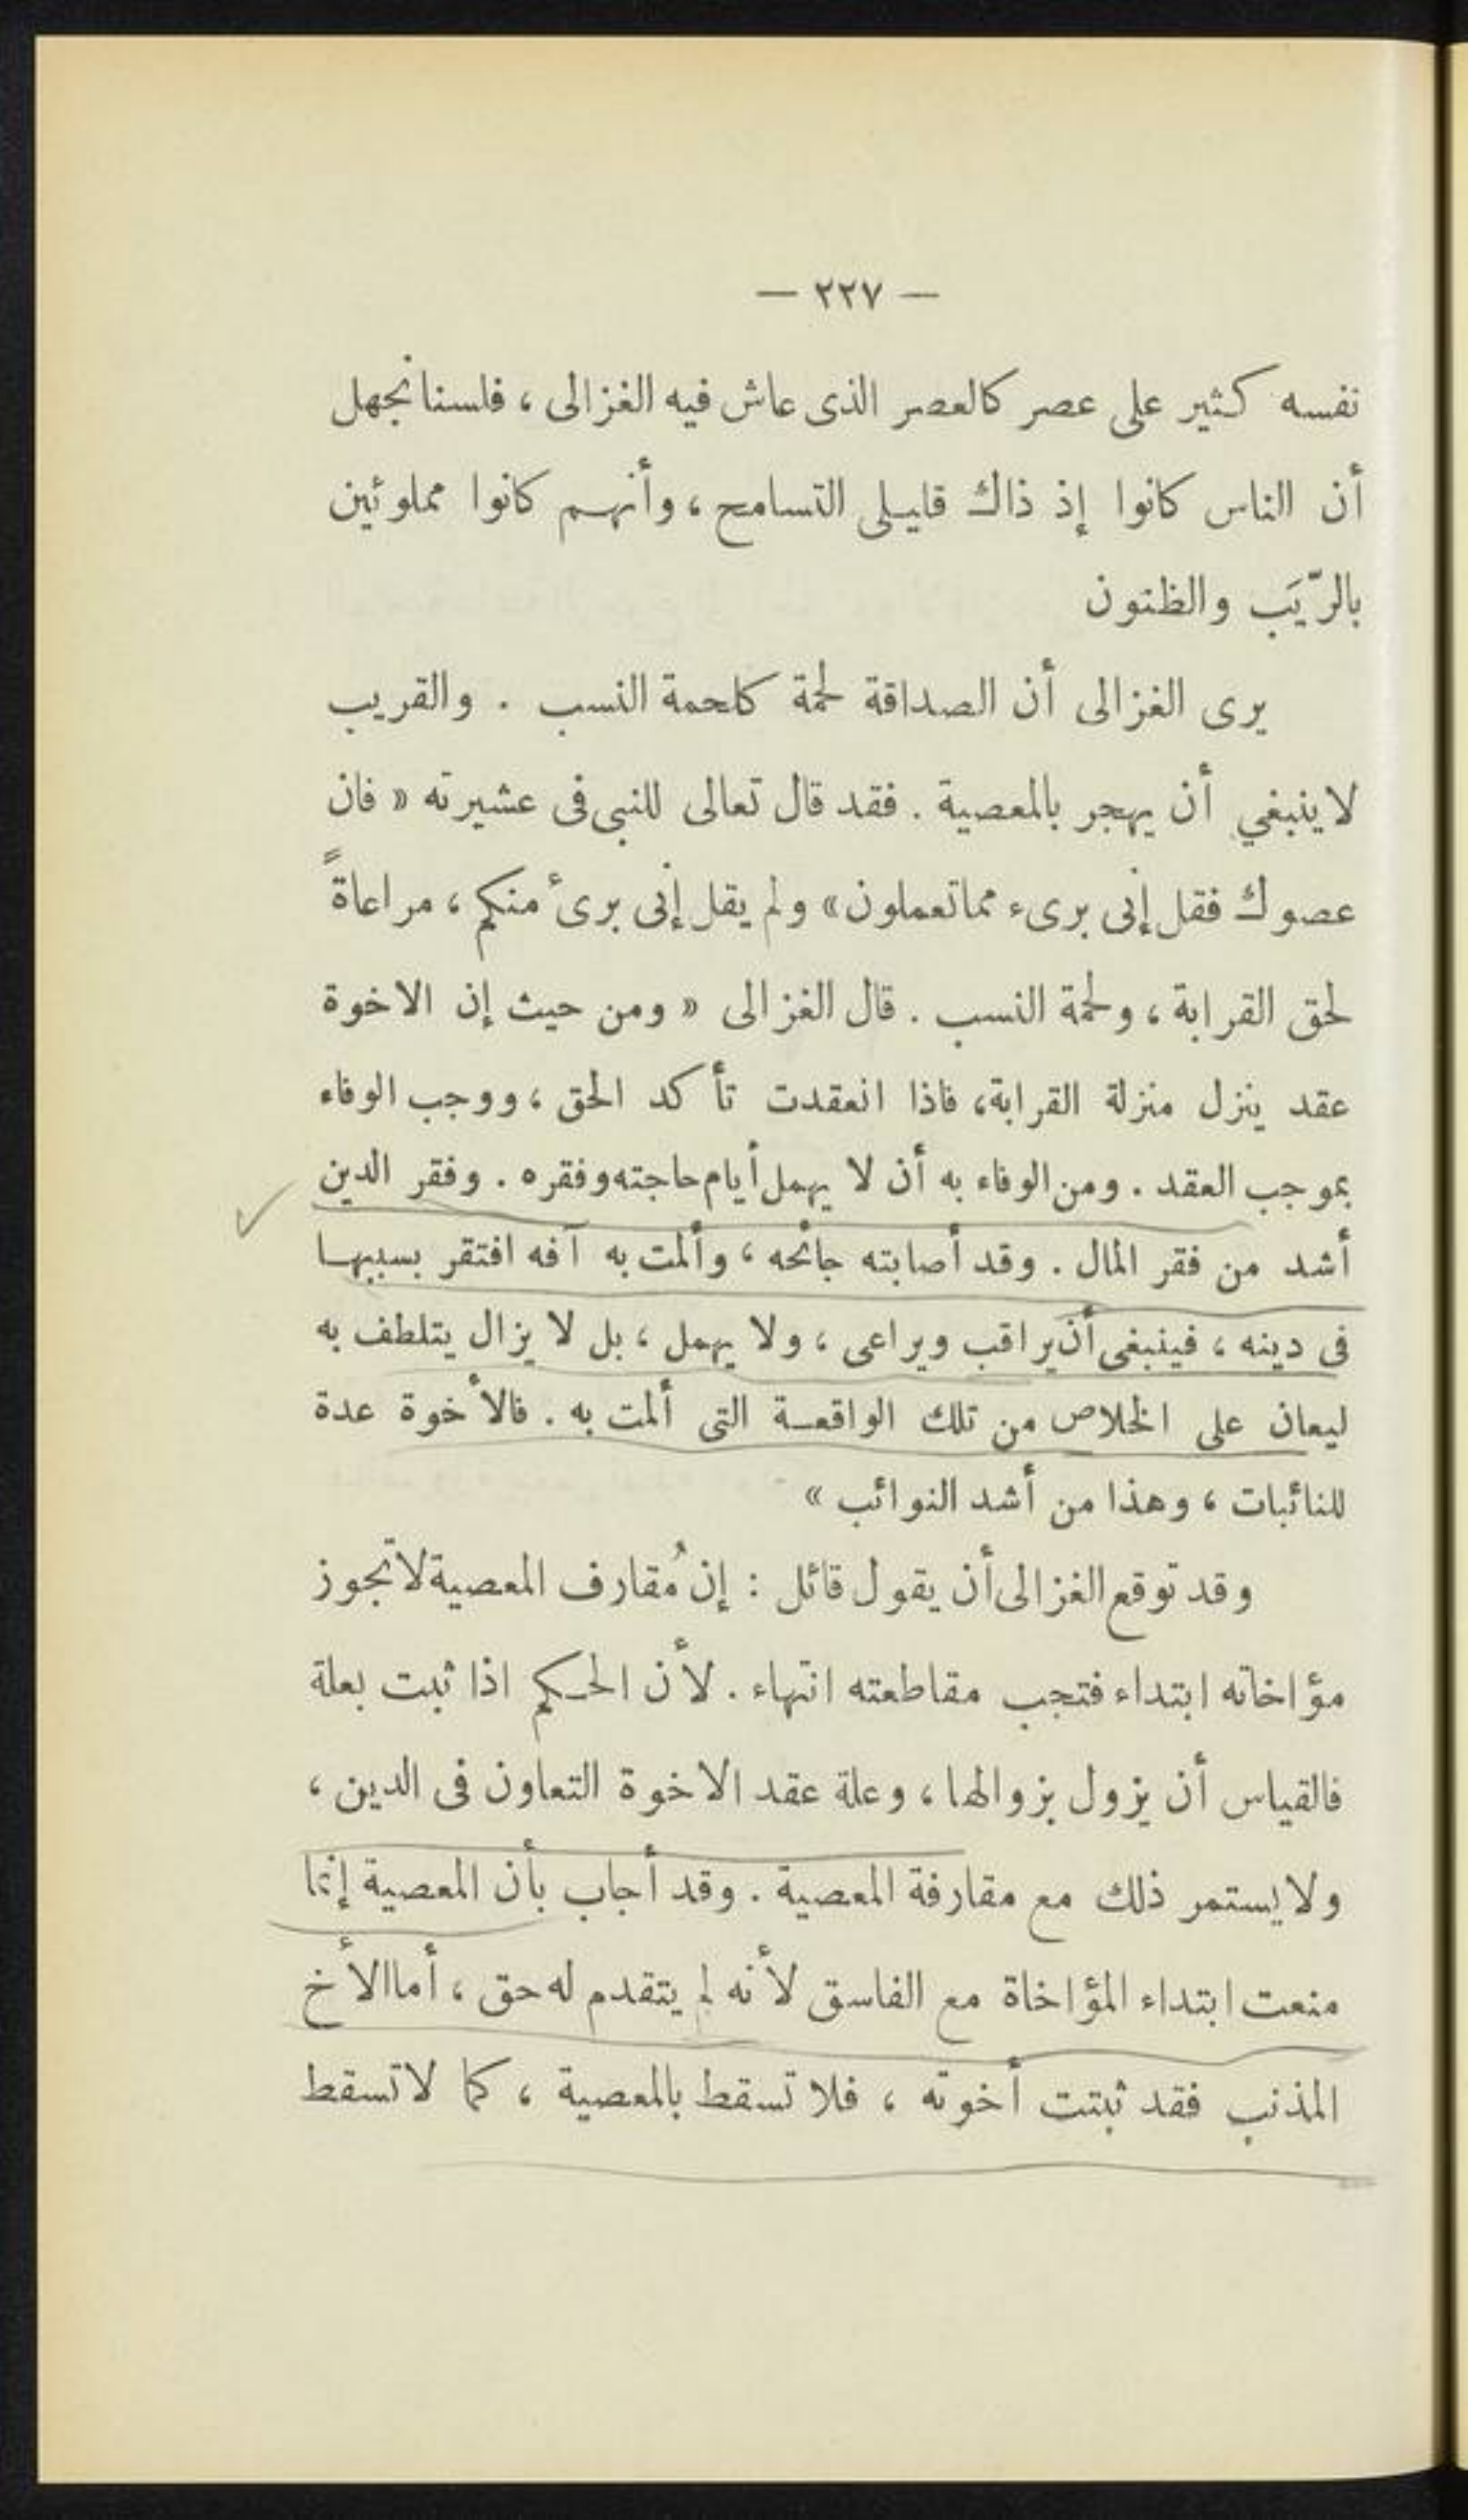 — ٢٢٧ —
نفسه كثير على عصر كالعصر الذى عاش فيه الغزالى ، فلسنا نجهل
أن الناس كانوا إذ ذاك قليلى التسامح ، وأنهم كانوا مملوئين
بالرّيَب والظنون
يرى الغزالى أن الصداقة لحمة كلحمة النسب . والقريب
لا ينبغي أن يهجر بالمعصية . فقد قال تعالى للنبى فى عشيرته « فان
عصوك فقل إنى برىء مما تعملون » ولم يقل إنى برئ منكم ، مراعاةً
لحق القرابة ، ولحمة النسب . قال الغزالى « ومن حيث إن الاخوة
عقد ينزل منزلة القرابة ، فاذا انعقدت تأكد الحق ، ووجب الوفاء
بموجب العقد . ومن الوفاء به أن لا يهمل أيام حاجته وفقره . وفقر الدين
أشد من فقر المال . وقد أصابته جائحه ، وألمت به آفه افتقر بسببها
فى دينه ، فينبغى أن يراقب ويراعى ، ولا يهمل ، بل لا يزال يتلطف به
ليعان على الخلاص من تلك الواقعة التى ألمت به . فالأخوة عدة
للنائبات ، وهذا من أشد النوائب »
وقد توقع الغزالى أن يقول قائل : إن مُقارف المعصية لا تجوز
مؤاخاته ابتداء فتجب مقاطعته انتهاء . لأن الحكم اذا ثبت بعلة
فالقياس أن يزول بزوالها ، وعلة عقد الاخوة التعاون فى الدين ،
ولا يستمر ذلك مع مقارفة المعصية . وقد أجاب بأن المعصية إنما
منعت ابتداء المؤاخاة مع الفاسق لأنه لم يتقدم له حق ، أما الأخ
المذنب فقد ثبتت أخوته ، فلا تسقط بالمعصية ، كما لا تسقط